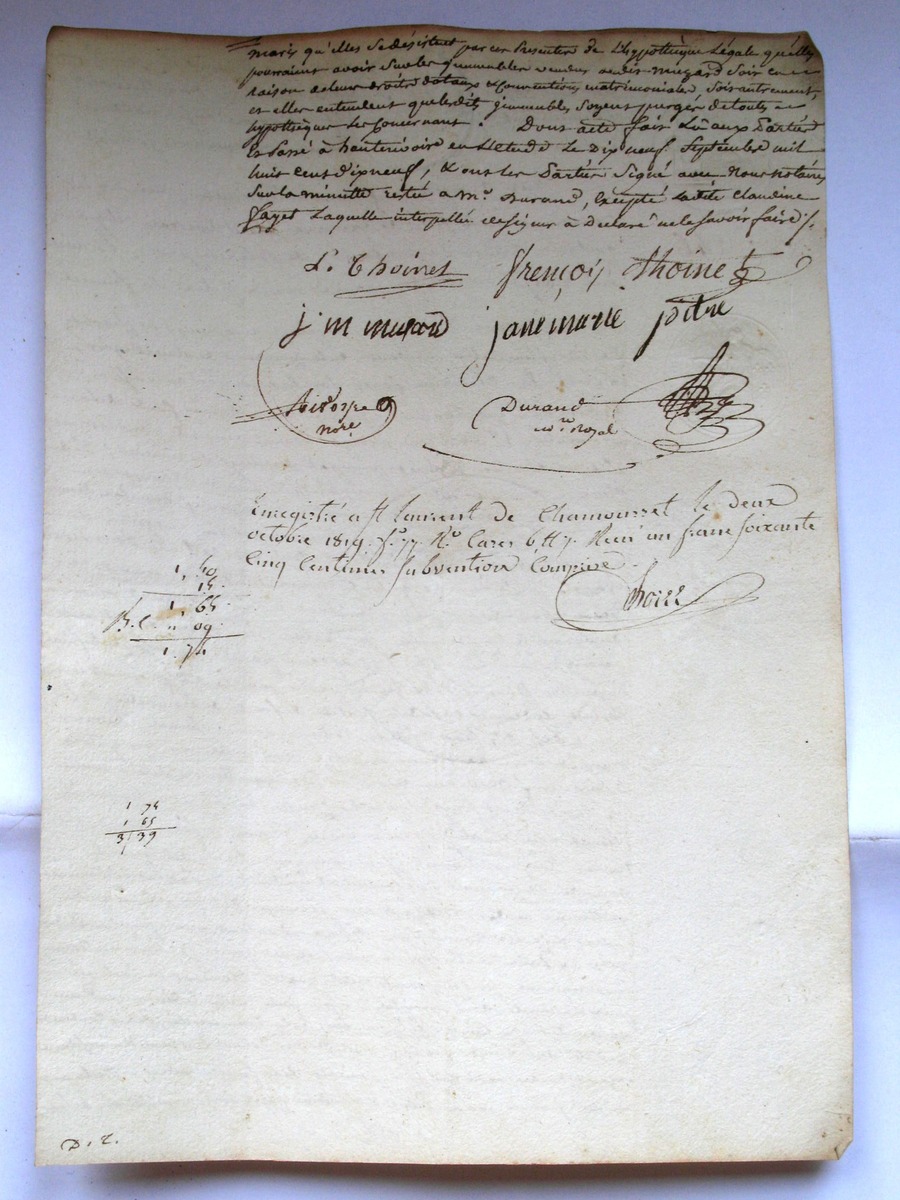 maris qu'elles se désistent par ces présentes de l'hypothèque légale qu'elles
pourraient avoir sur les immeubles vendus audit Muzard soit en
raison de leurs droits dotaux & conventions matrimoniales, soit autrement,
et elles entendent que lesdits immeubles soyent purgés de toute
hypothèque les concernant. Dont acte fait lû aux parties
Et Passé à hauterivoire en L'Etude Le Dix neuf Septembre mil
huit cent dixneuf, & ont les Parties Signé avec Nous notaires
Sur la minutte restée a Mr. Durand, Excepté Ladite Claudine
fayet Laquelle interpellée de signer à Declaré ne le savoir faire ./.
L. Thoinet françois thoinet
j m muzard jane marie pitre
nore. Durand
nre. Royal
Enregistré a St laurent de Chamousset le deux
octobre 1819. fo. 77. Ro. Cases 6 & 7. Recu un franc soixante
Cinq Centimes subvention Comprise.
1, 50
15
1, 65
" 09
1. 74
1 74
1 65
3 39
D. 2.